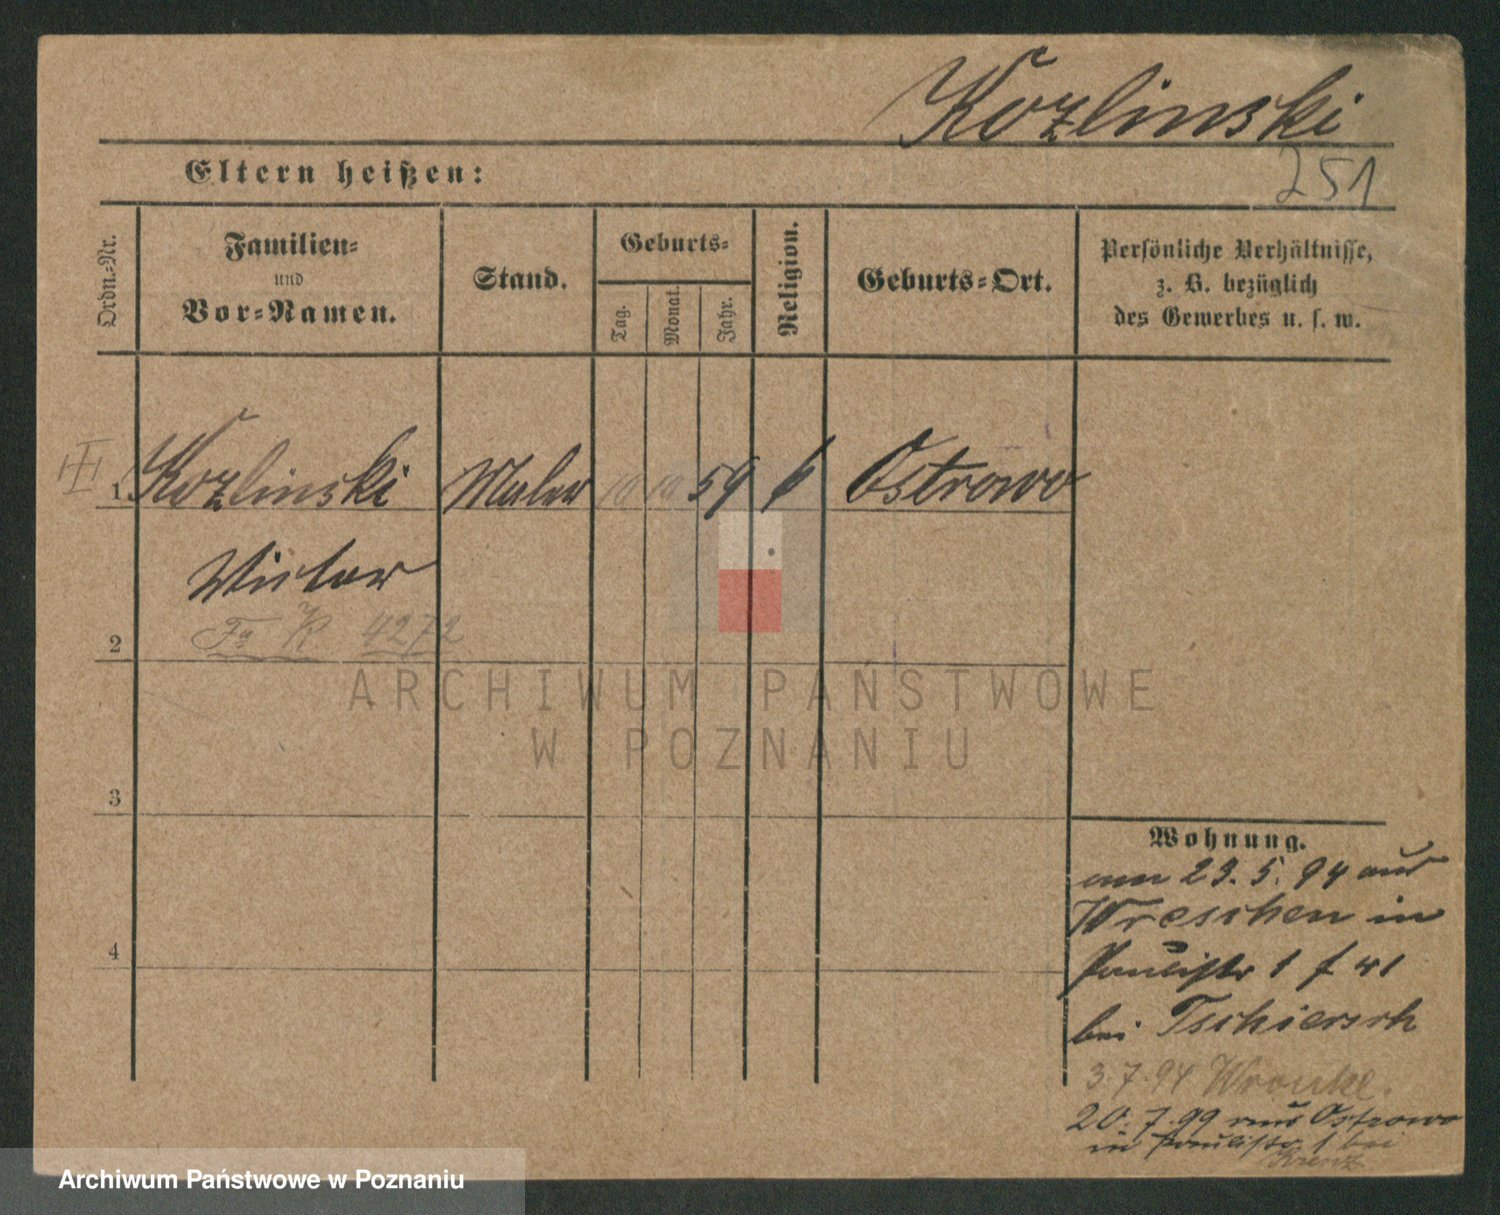 Kozlinski
Eltern heißen:
251
Ordn.-Nr.
Familien-
und
Vor-Namen.
Stand.
Geburts-
Tag.
Monat.
Jahr.
Religion.
Geburts-Ort.
Persönliche Verhältnisse,
z. B. bezüglich
des Gewerbes u. s. w.
III
1 Kozlinski Maler 10 10 59 k Ostrowo
Victor
K 4272
2
ARCHIWUM PAŃSTWOWE
W POZNANIU
3
Wohnung.
am 23. 5. 94 aus
Wreschen in
Paulistr 1 f 41
bei Tschiersch
3. 7. 94 Wronke.
20. 7. 99 aus Ostrowo
in Paulistr. 1 bei
4
Archiwum Państwowe w Poznaniu